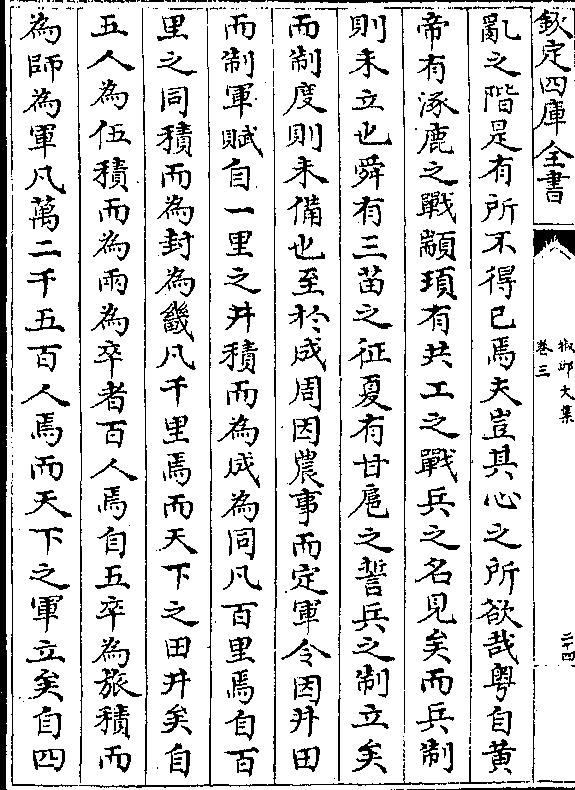 欽定四庫全書
椒邱文集
卷三
二十四
亂之階是有所不得已焉夫豈其心之所欲哉粤自黄
帝有涿鹿之戰顓頊有共工之戰兵之名見矣而兵制
則未立也舜有三苗之征夏有甘扈之誓兵之制立矣
而制度則未備也至於成周因農事而定軍令因井田
而制軍賦自一里之井積而為成為同凡百里焉自百
里之同積而為封為畿凡千里焉而天下之田井矣自
五人為伍積而為兩為卒者百人焉自五卒為旅積而
為師為軍凡萬二千五百人焉而天下之軍立矣自四